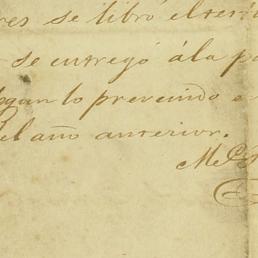 res se libró el
se entregó á la
lo prevenido
el año anterior.